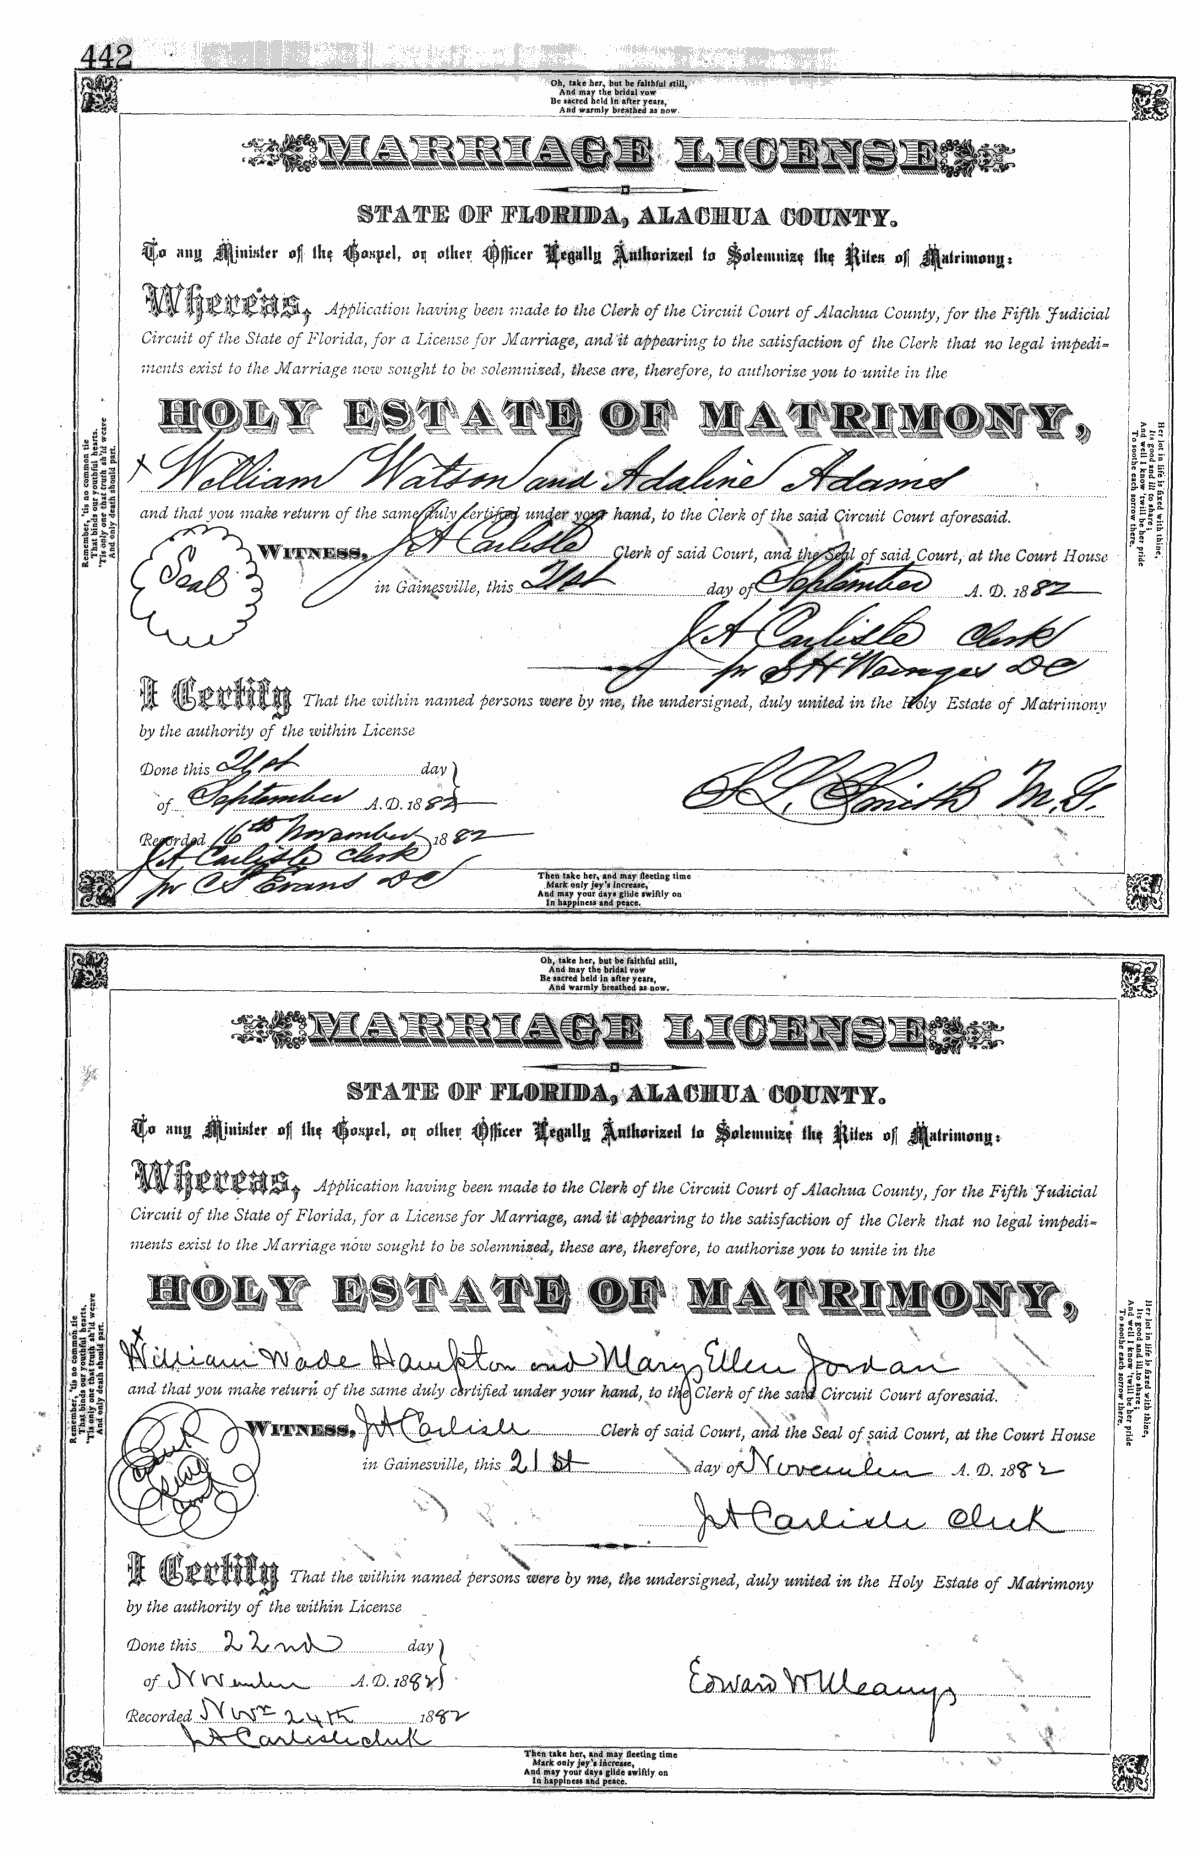 442
Oh, take her, but be faithful still,
And may the bridal vow
Be sacred held in after years,
And warmly breathed as now.
MARRIAGE LICENSE
STATE OF FLORIDA, ALACHUA COUNTY.
To any Minister of the Gospel, or other Officer Legally Authorized to Solemnize the Rites of Matrimony:
Whereas, Application having been made to the Clerk of the Circuit Court of Alachua County, for the Fifth Judicial
Circuit of the State of Florida, for a License for Marriage, and it appearing to the satisfaction of the Clerk that no legal impedi=
ments exist to the Marriage now sought to be solemnized, these are, therefore, to authorize you to unite in the
HOLY ESTATE OF MATRIMONY,
x William Watson and Adaline Adams
and that you make return of the same duly certified under your hand, to the Clerk of the said Circuit Court aforesaid.
Seal
WITNESS, J A Carlisle Clerk of said Court, and the Seal of said Court, at the Court House
in Gainesville, this 21st day of September A. D. 1882
J A Carlisle Clerk
pr S H Wienges DC
I Certify That the within named persons were by me, the undersigned, duly united in the Holy Estate of Matrimony
by the authority of the within License
Done this 21st day
of September A.D. 1882
S L Smith M. G.
Recorded 16th November 1882
J A Carlisle Clerk
pr C S Evans DC
Remember, 'tis no common tie
That binds our youthful hearts,
'Tis only one that truth sh'ld weave
And only death should part.
Her lot in life is fixed with thine,
Its good and ill to share;
And well I know 'twill be her pride
To soothe each sorrow there.
Then take her, and may fleeting time
Mark only joy's increase,
And may your days glide swiftly on
In happiness and peace.
Oh, take her, but be faithful still,
And may the bridal vow
Be sacred held in after years,
And warmly breathed as now.
MARRIAGE LICENSE
STATE OF FLORIDA, ALACHUA COUNTY.
To any Minister of the Gospel, or other Officer Legally Authorized to Solemnize the Rites of Matrimony:
Whereas, Application having been made to the Clerk of the Circuit Court of Alachua County, for the Fifth Judicial
Circuit of the State of Florida, for a License for Marriage, and it appearing to the satisfaction of the Clerk that no legal impedi=
ments exist to the Marriage now sought to be solemnized, these are, therefore, to authorize you to unite in the
HOLY ESTATE OF MATRIMONY,
x
William Wade Hampton and Mary Ellen Jordan
and that you make return of the same duly certified under your hand, to the Clerk of the said Circuit Court aforesaid.
WITNESS, J A Carlisle Clerk of said Court, and the Seal of said Court, at the Court House
in Gainesville, this 21st day of November A. D. 1882
J A Carlisle Clerk
I Certify That the within named persons were by me, the undersigned, duly united in the Holy Estate of Matrimony
by the authority of the within License
Done this 22nd day
of November A.D. 1882
Edward W Meany
Recorded Novr 24th 1882
J A Carlisle clerk
Remember, 'tis no common tie
That binds our youthful hearts,
'Tis only one that truth sh'ld weave
And only death should part.
Her lot in life is fixed with thine,
Its good and ill to share;
And well I know 'twill be her pride
To soothe each sorrow there.
Then take her, and may fleeting time
Mark only joy's increase,
And may your days glide swiftly on
In happiness and peace.